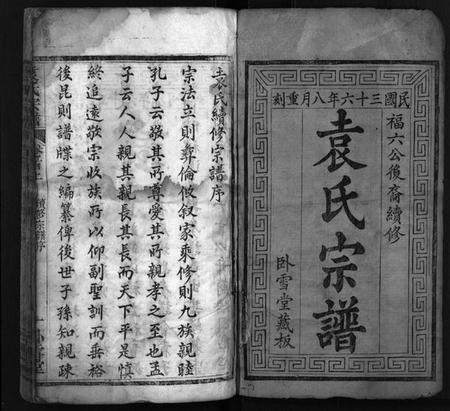 民國三十六年八月重刻
福六公後裔續修
袁氏宗譜
臥雪堂藏板
袁氏續修宗譜序
宗法立則彝倫攸叙家乘修則九族親睦
孔子云敬其所尊愛其所親孝之至也孟
子云人人親其親長其長而天下平是慎
終追遠敬宗收族所以仰副聖訓而垂裕
後昆則譜牒之編纂俾後世子孫知親疎
續修宗譜序